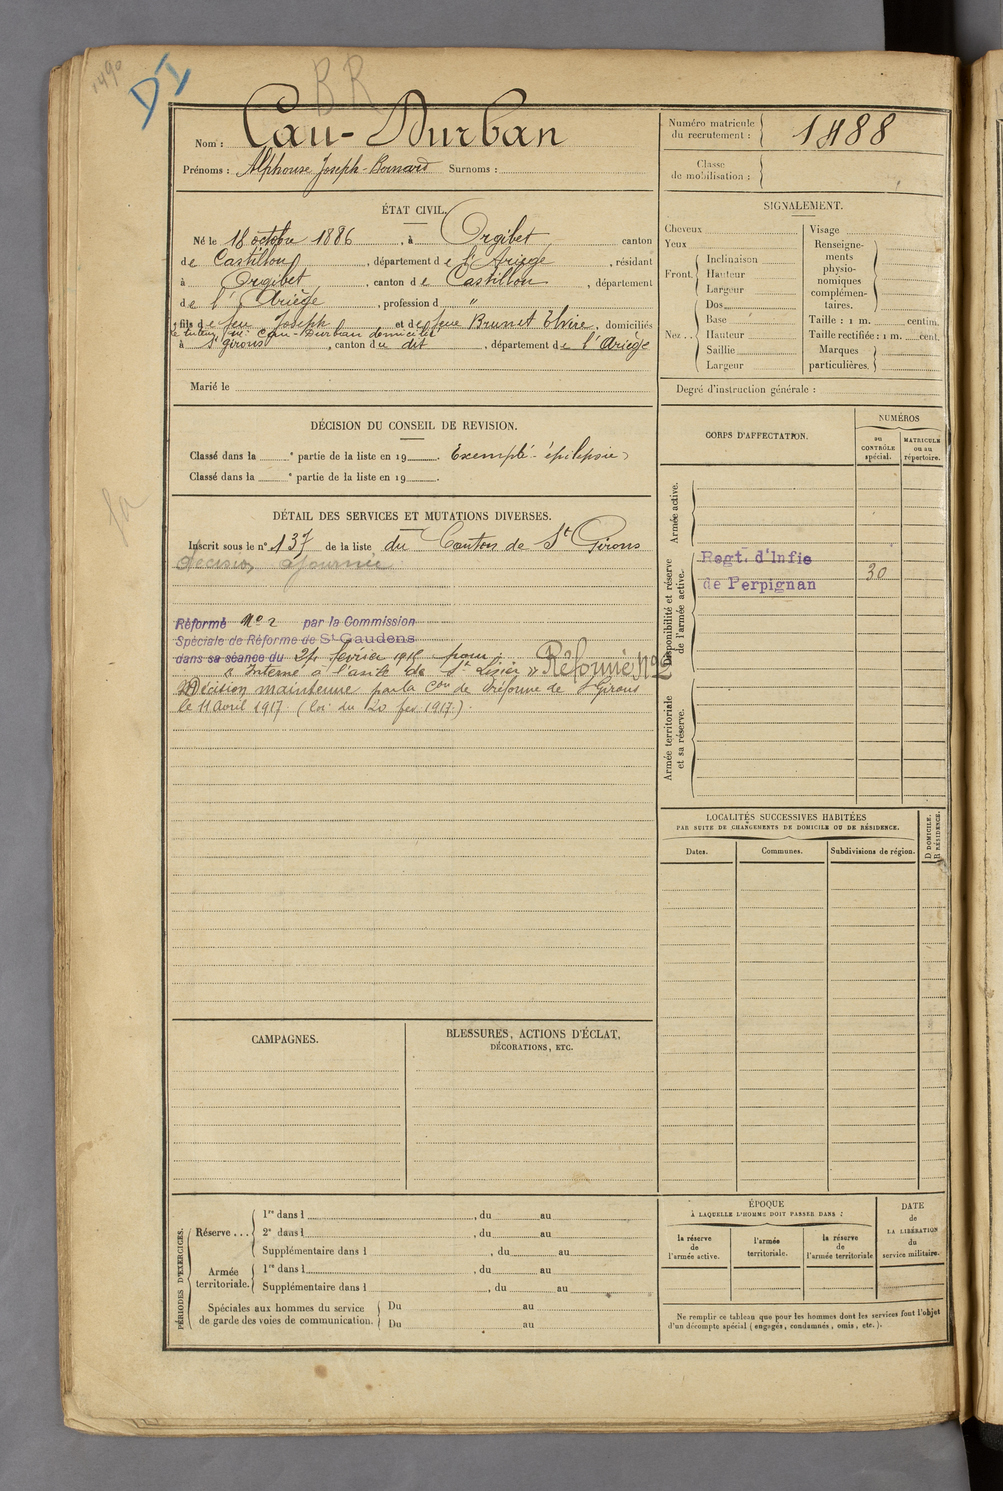 1490
BR
Nom : Cau-Durban
Prénoms : Alphonse Joseph-Bernard Surnoms :
Numéro matricule du recrutement : 1488
Classe de mobilisation :
ÉTAT CIVIL.
Né le 18 octobre 1886, à Orgibet, canton
de Castillon, département de l'Ariège, résidant
à Orgibet, canton de Castillon, département
de l'Ariège, profession d "
fils de feu Joseph et de feue Brunet Elvire, domiciliés
Cau-Durban domicilié
à St Girons, canton du dit, département de l'Ariège
Marié le
SIGNALEMENT.
Cheveux
Yeux
Front. Inclinaison
Hauteur
Largeur
Nez.. Dos
Base
Hauteur
Saillie
Largeur
Visage
Renseignements physionomiques complémentaires.
Taille : 1 m. centim.
Taille rectifiée : 1 m. cent.
Marques particulières.
Degré d'instruction générale :
DÉCISION DU CONSEIL DE REVISION.
Classé dans la e partie de la liste en 19 . Exempté - épilepsie
Classé dans la e partie de la liste en 19 .
DÉTAIL DES SERVICES ET MUTATIONS DIVERSES.
Inscrit sous le n° 137 de la liste du Canton de St Girons
décision ajournée
Réformé No 2 par la Commission
Spéciale de Réforme de St Gaudens
dans sa séance du février pour
« Interné à l'asile de St Lizier » Réformé No 2
Décision maintenue par la Con de Réforme de St Girons
le 11 avril 1917 (loi du 20 fev 1917).
CORPS D'AFFECTATION.
NUMÉROS
au CONTRÔLE spécial.
MATRICULE ou au répertoire.
Armée active.
Disponibilité et réserve de l'armée active.
Regt. d'Infie
de Perpignan
30
Armée territoriale et sa réserve.
LOCALITÉS SUCCESSIVES HABITÉES
PAR SUITE DE CHANGEMENTS DE DOMICILE OU DE RÉSIDENCE.
Dates.
Communes.
Subdivisions de région.
D DOMICILE.
R RÉSIDENCE.
CAMPAGNES.
BLESSURES, ACTIONS D'ÉCLAT,
DÉCORATIONS, ETC.
PÉRIODES D'EXERCICES.
Réserve ... 1re dans l , du au
2e dans l , du au
Supplémentaire dans l , du au
Armée territoriale. 1re dans l , du au
Supplémentaire dans l , du au
Spéciales aux hommes du service
de garde des voies de communication. Du au
Du au
ÉPOQUE
À LAQUELLE L'HOMME DOIT PASSER DANS :
la réserve de l'armée active.
l'armée territoriale.
la réserve de l'armée territoriale
DATE de LA LIBÉRATION du service militaire.
Ne remplir ce tableau que pour les hommes dont les services font l'objet
d'un décompte spécial (engagés, condamnés, omis, etc.).